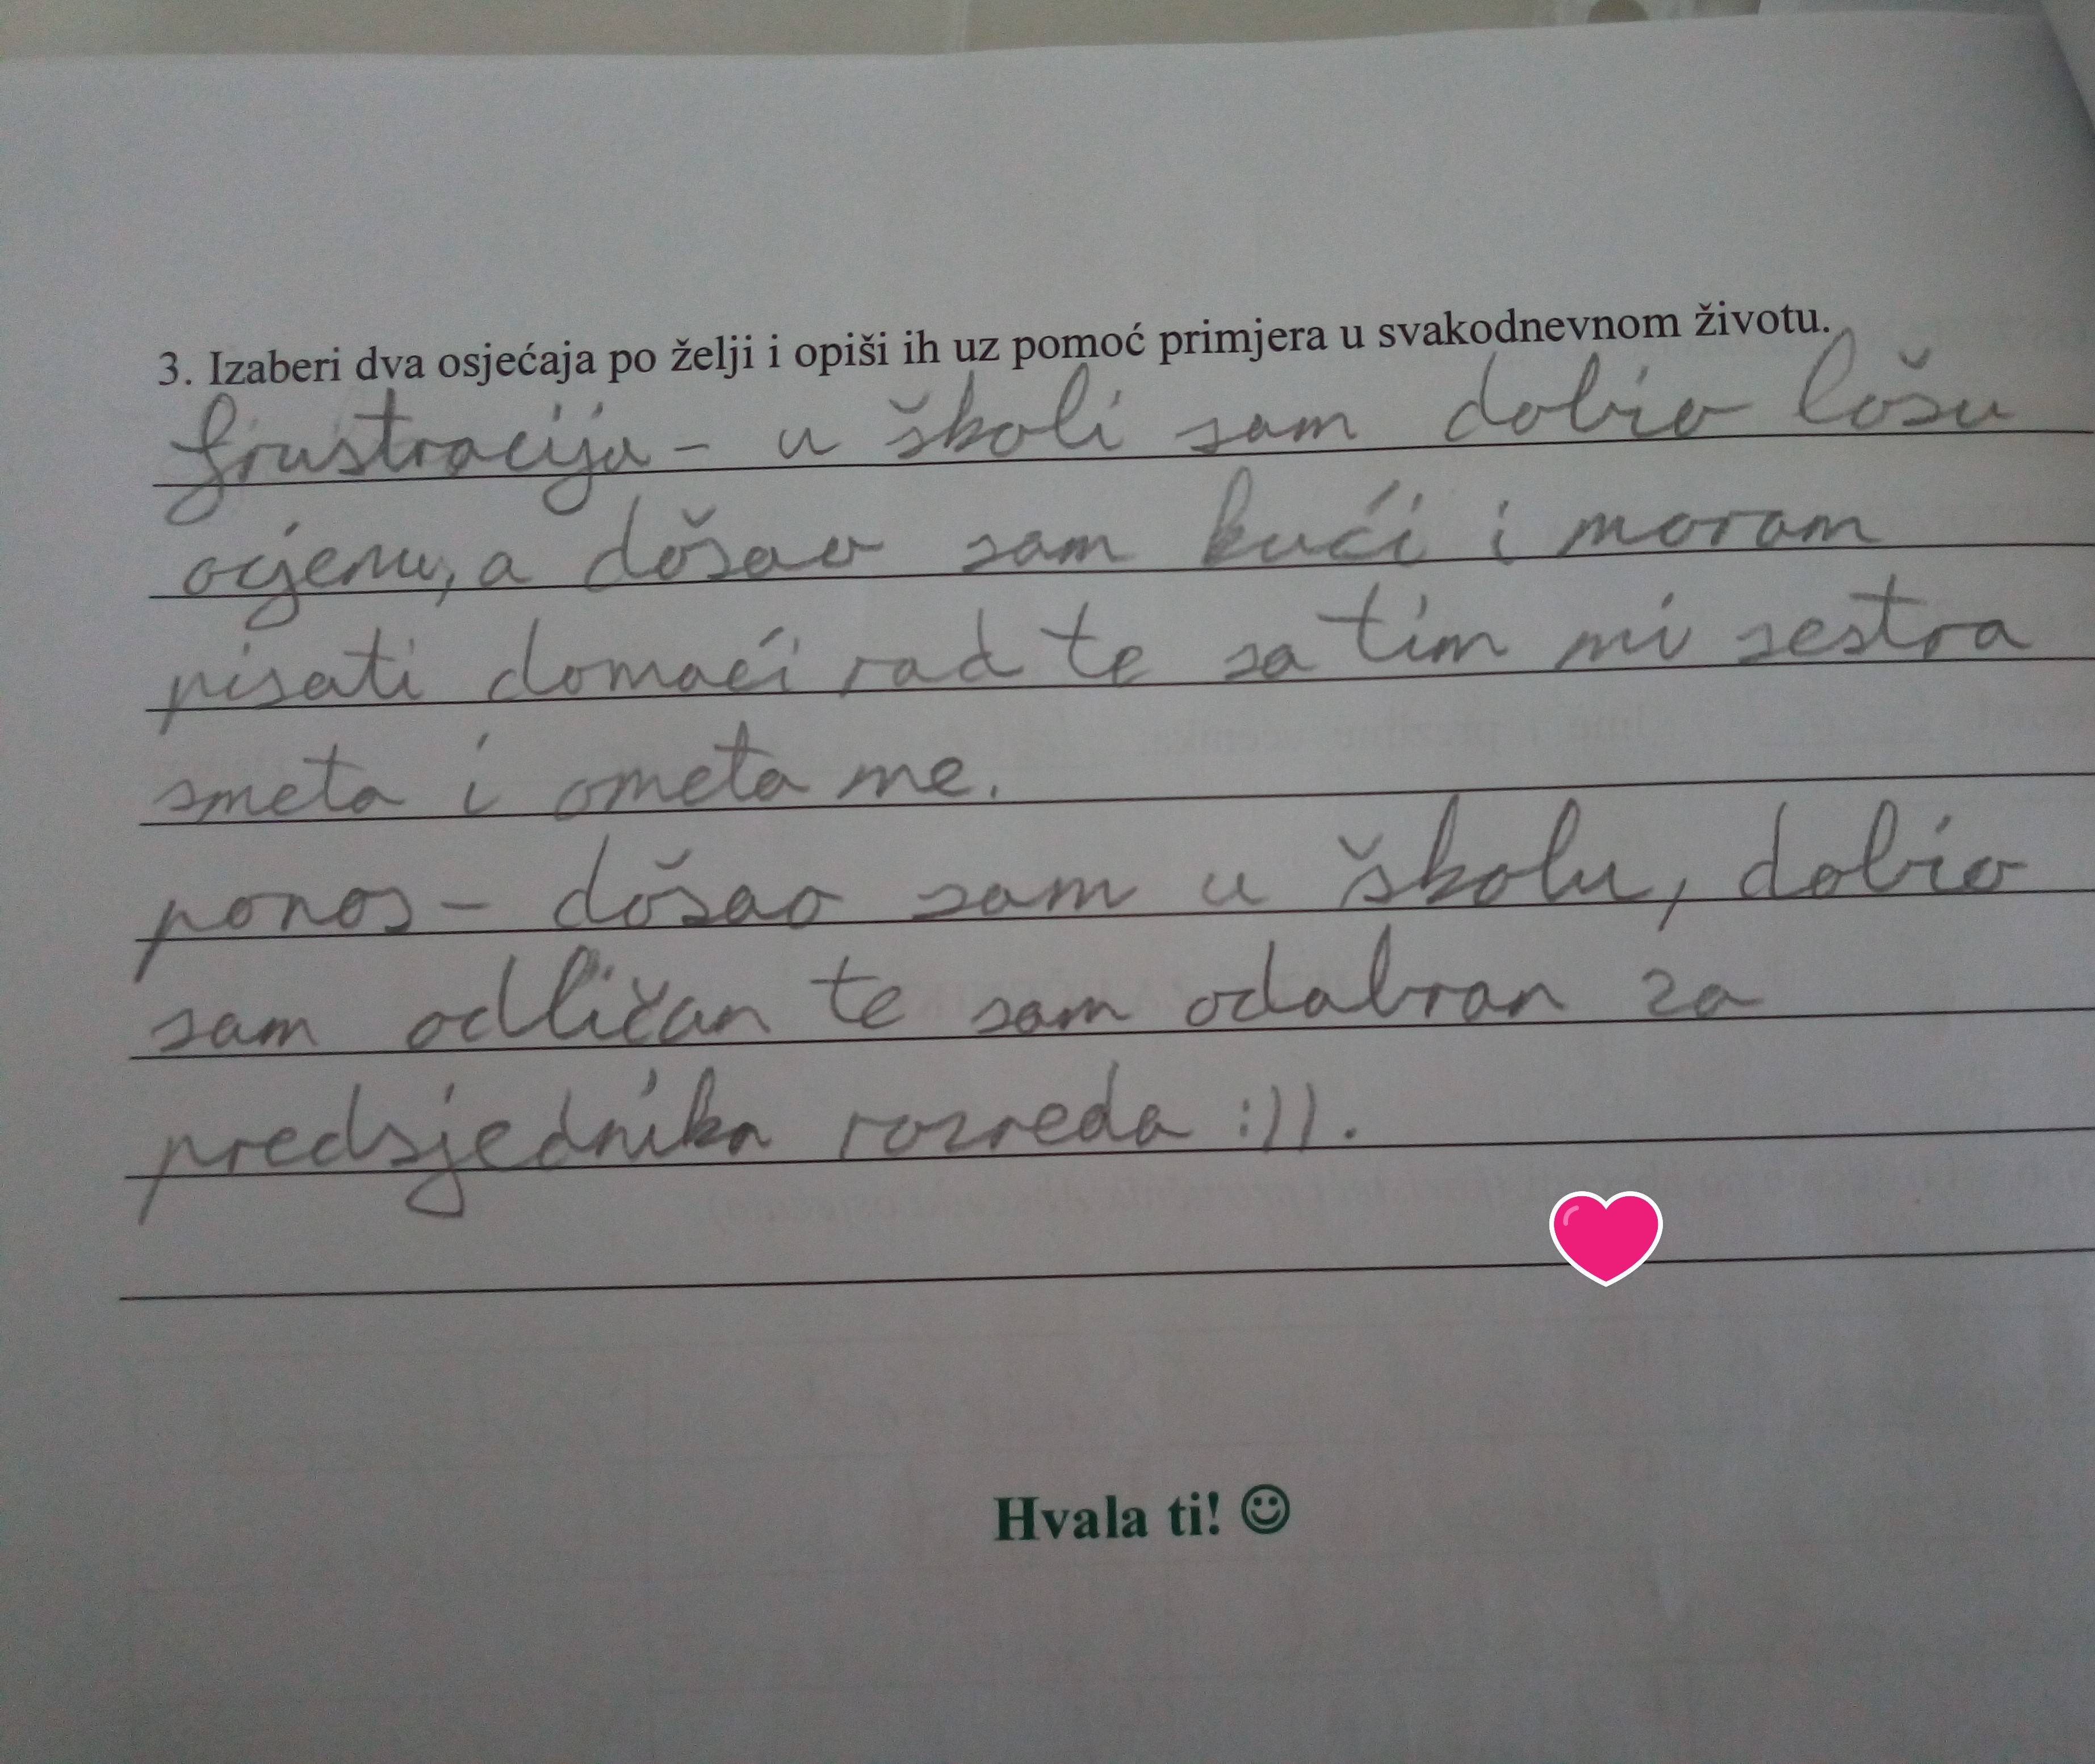 3. Izaberi dva osjećaja po želji i opiši ih uz pomoć primjera u svakodnevnom životu.
frustracija - u školi sam dobio lošu
ocjenu, a došao sam kući i moram
pisati domaći rad te sa tim mi sestra
smeta i ometa me.
ponos - došao sam u školu, dobio
sam odličan te sam odabran za
predsjednika razreda :)).
Hvala ti! ☺